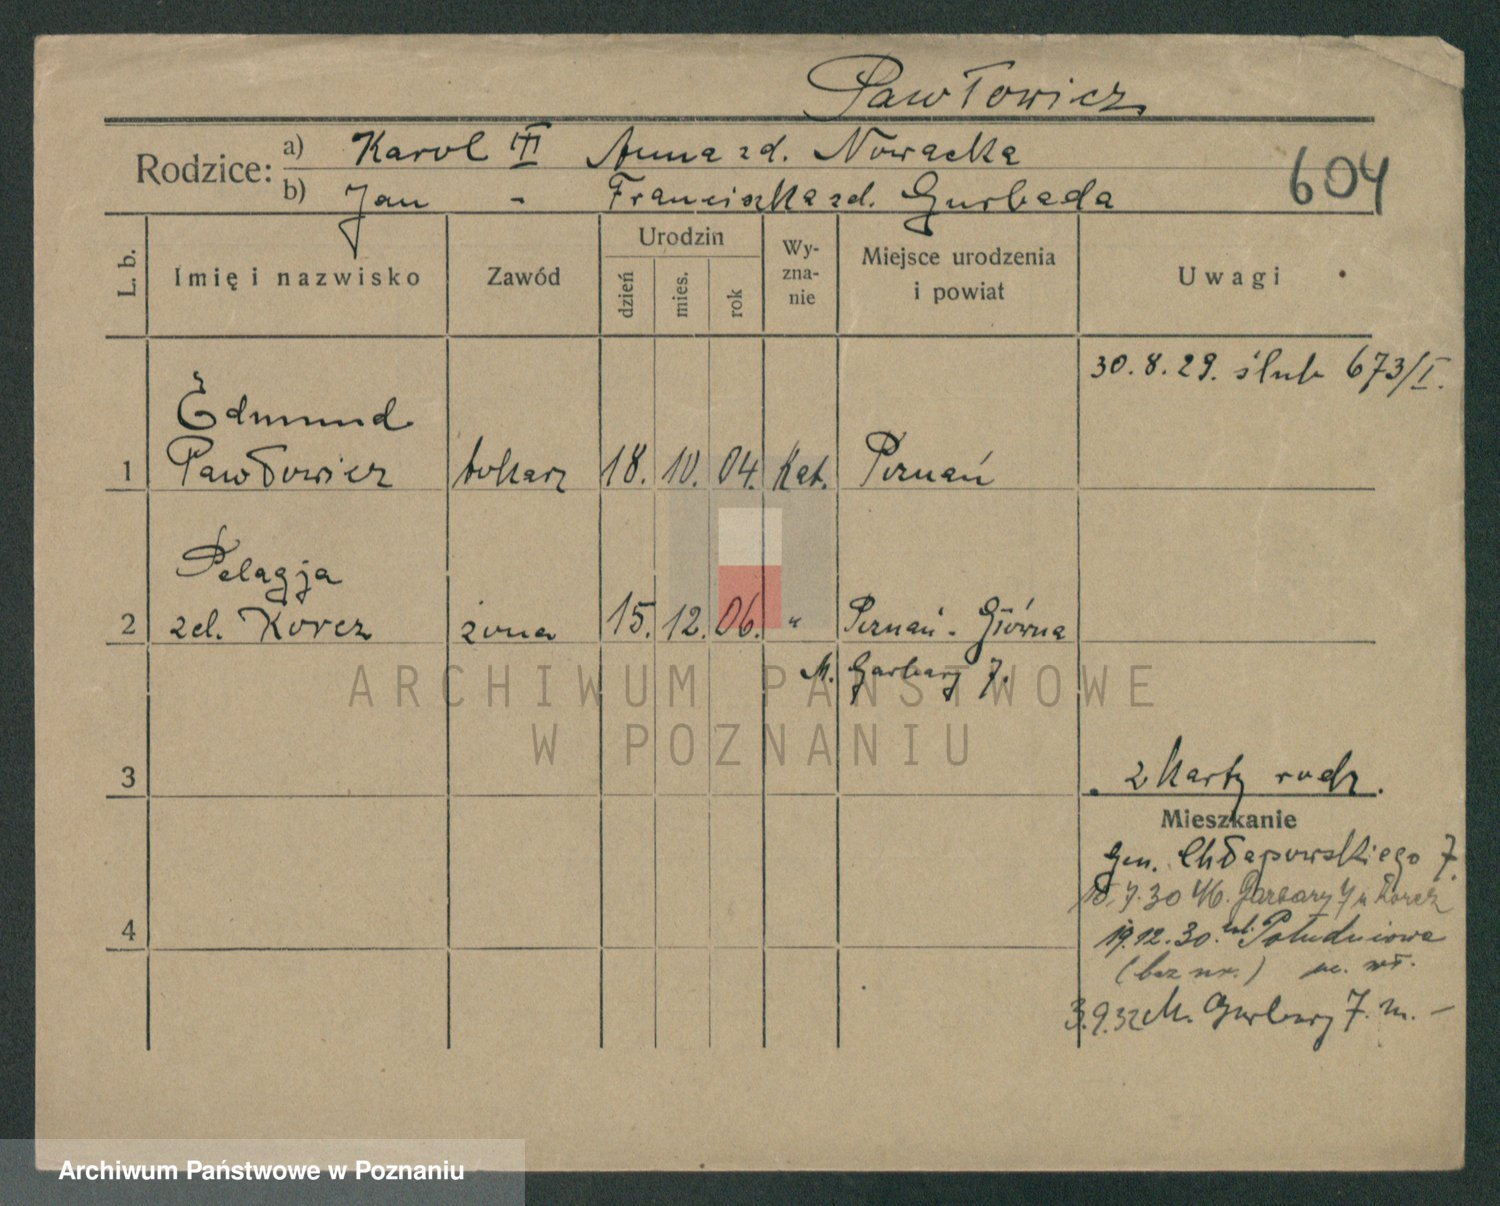 Pawłowicz
Rodzice: a) Karol III Anna zd. Nowacka
b) Jan - Franciszka zd. Gurbada
604
L. b. Imię i nazwisko Zawód Urodzin dzień mies. rok Wy-zna-nie Miejsce urodzenia i powiat Uwagi
30.8.29. ślub 673/I.
Edmund
1 Pawłowicz tokarz 18. 10. 04. Kat. Poznań
Pelagja
2 zd. Korcz żona 15. 12. 06. " Poznań - Główna
M. Garbary 7.
3 z karty rodz.
Mieszkanie
Gen. Chłapowskiego 7.
15.7.30 M. Garbary 7 u Korcz
4 19.12.30. ul. Południowa
(bez nr.) m. wł.
3.9.32 M. Garbary 7. m. -
ARCHIWUM PAŃSTWOWE
W POZNANIU
Archiwum Państwowe w Poznaniu